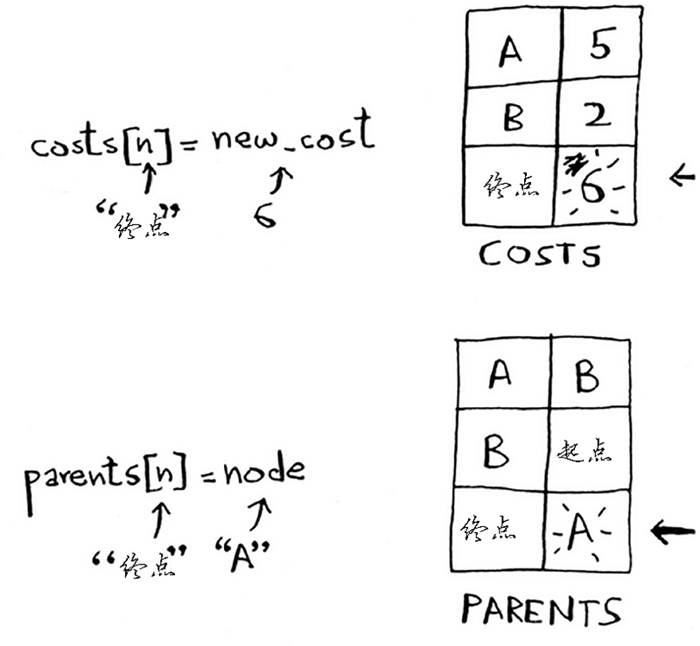 costs[n] = new_cost
“终点” 6
A 5
B 2
终点 6
COSTS
parents[n] = node
“终点” “A”
A B
B 起点
终点 A
PARENTS